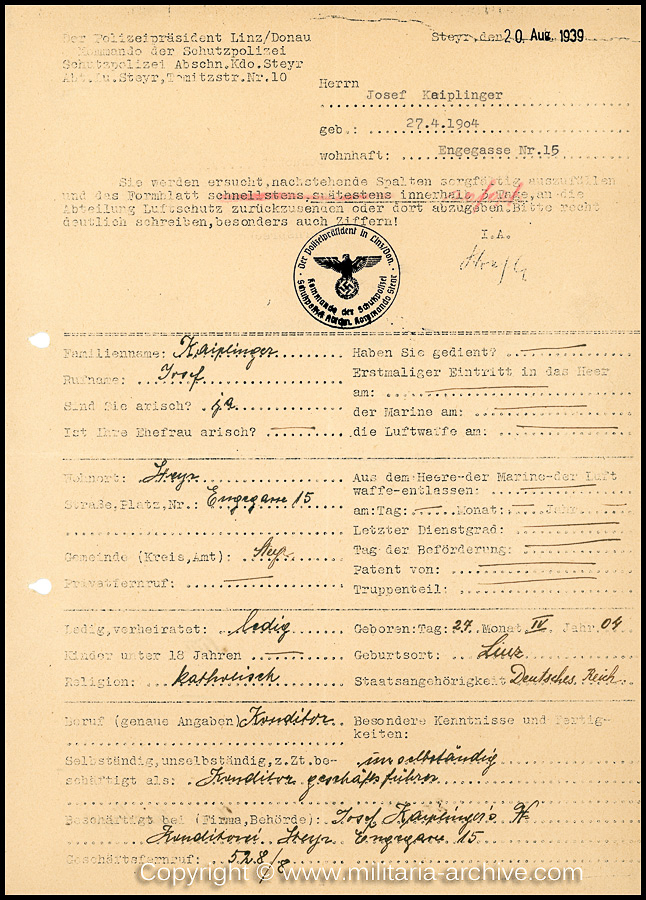 Der Polizeipräsident Linz/Donau
Kommando der Schutzpolizei
Schutzpolizei Abschn.Kdo.Steyr
Abt.Lu.Steyr,Tomitzstr.Nr.10
Steyr,den 20 Aug. 1939
Herrn
Josef Kaiplinger
geb.: 27.4.1904
wohnhaft: Engegasse Nr.15
Sie werden ersucht,nachstehende Spalten sorgfältig auszufüllen
und das Formblatt schnellstens,spätestens innerhalb Tage,an die
Abteilung Luftschutz zurückzusenden oder dort abzugeben.Bitte recht
deutlich schreiben,besonders auch Ziffern!
I.A.
Der Polizeipräsident in Linz/Don.
Kommando der Schutzpolizei
Schutzpolizei Abschn. Kommando Steyr
Familienname: Kaiplinger
Rufname: Josef
Sind Sie arisch? ja
Ist Ihre Ehefrau arisch?
Haben Sie gedient?
Erstmaliger Eintritt in das Heer
am:
der Marine am:
die Luftwaffe am:
Wohnort: Steyr
Straße,Platz,Nr.: Engegasse 15
Gemeinde (Kreis,Amt): Steyr
Privatfernruf:
Aus dem Heere-der Marine-der Luft
waffe-entlassen:
am:Tag: Monat: Jahr
Letzter Dienstgrad:
Tag der Beförderung:
Patent von:
Truppenteil:
Ledig,verheiratet: ledig
Kinder unter 18 Jahren
Religion: katholisch
Geboren:Tag: 27. Monat IV. Jahr. 04
Geburtsort: Linz
Staatsangehörigkeit Deutsches Reich
Beruf (genaue Angaben) Konditor
Besondere Kenntnisse und Fertig-
keiten:
Selbständig,unselbständig,z.Zt.be- unselbständig
schäftigt als: Konditor geschäftsführer
Beschäftigt bei (Firma,Behörde): Josef Kaiplinger's
Konditorei Steyr Engegasse 15
Geschäftsfernruf: 528/8
Copyright © www.militaria-archive.com